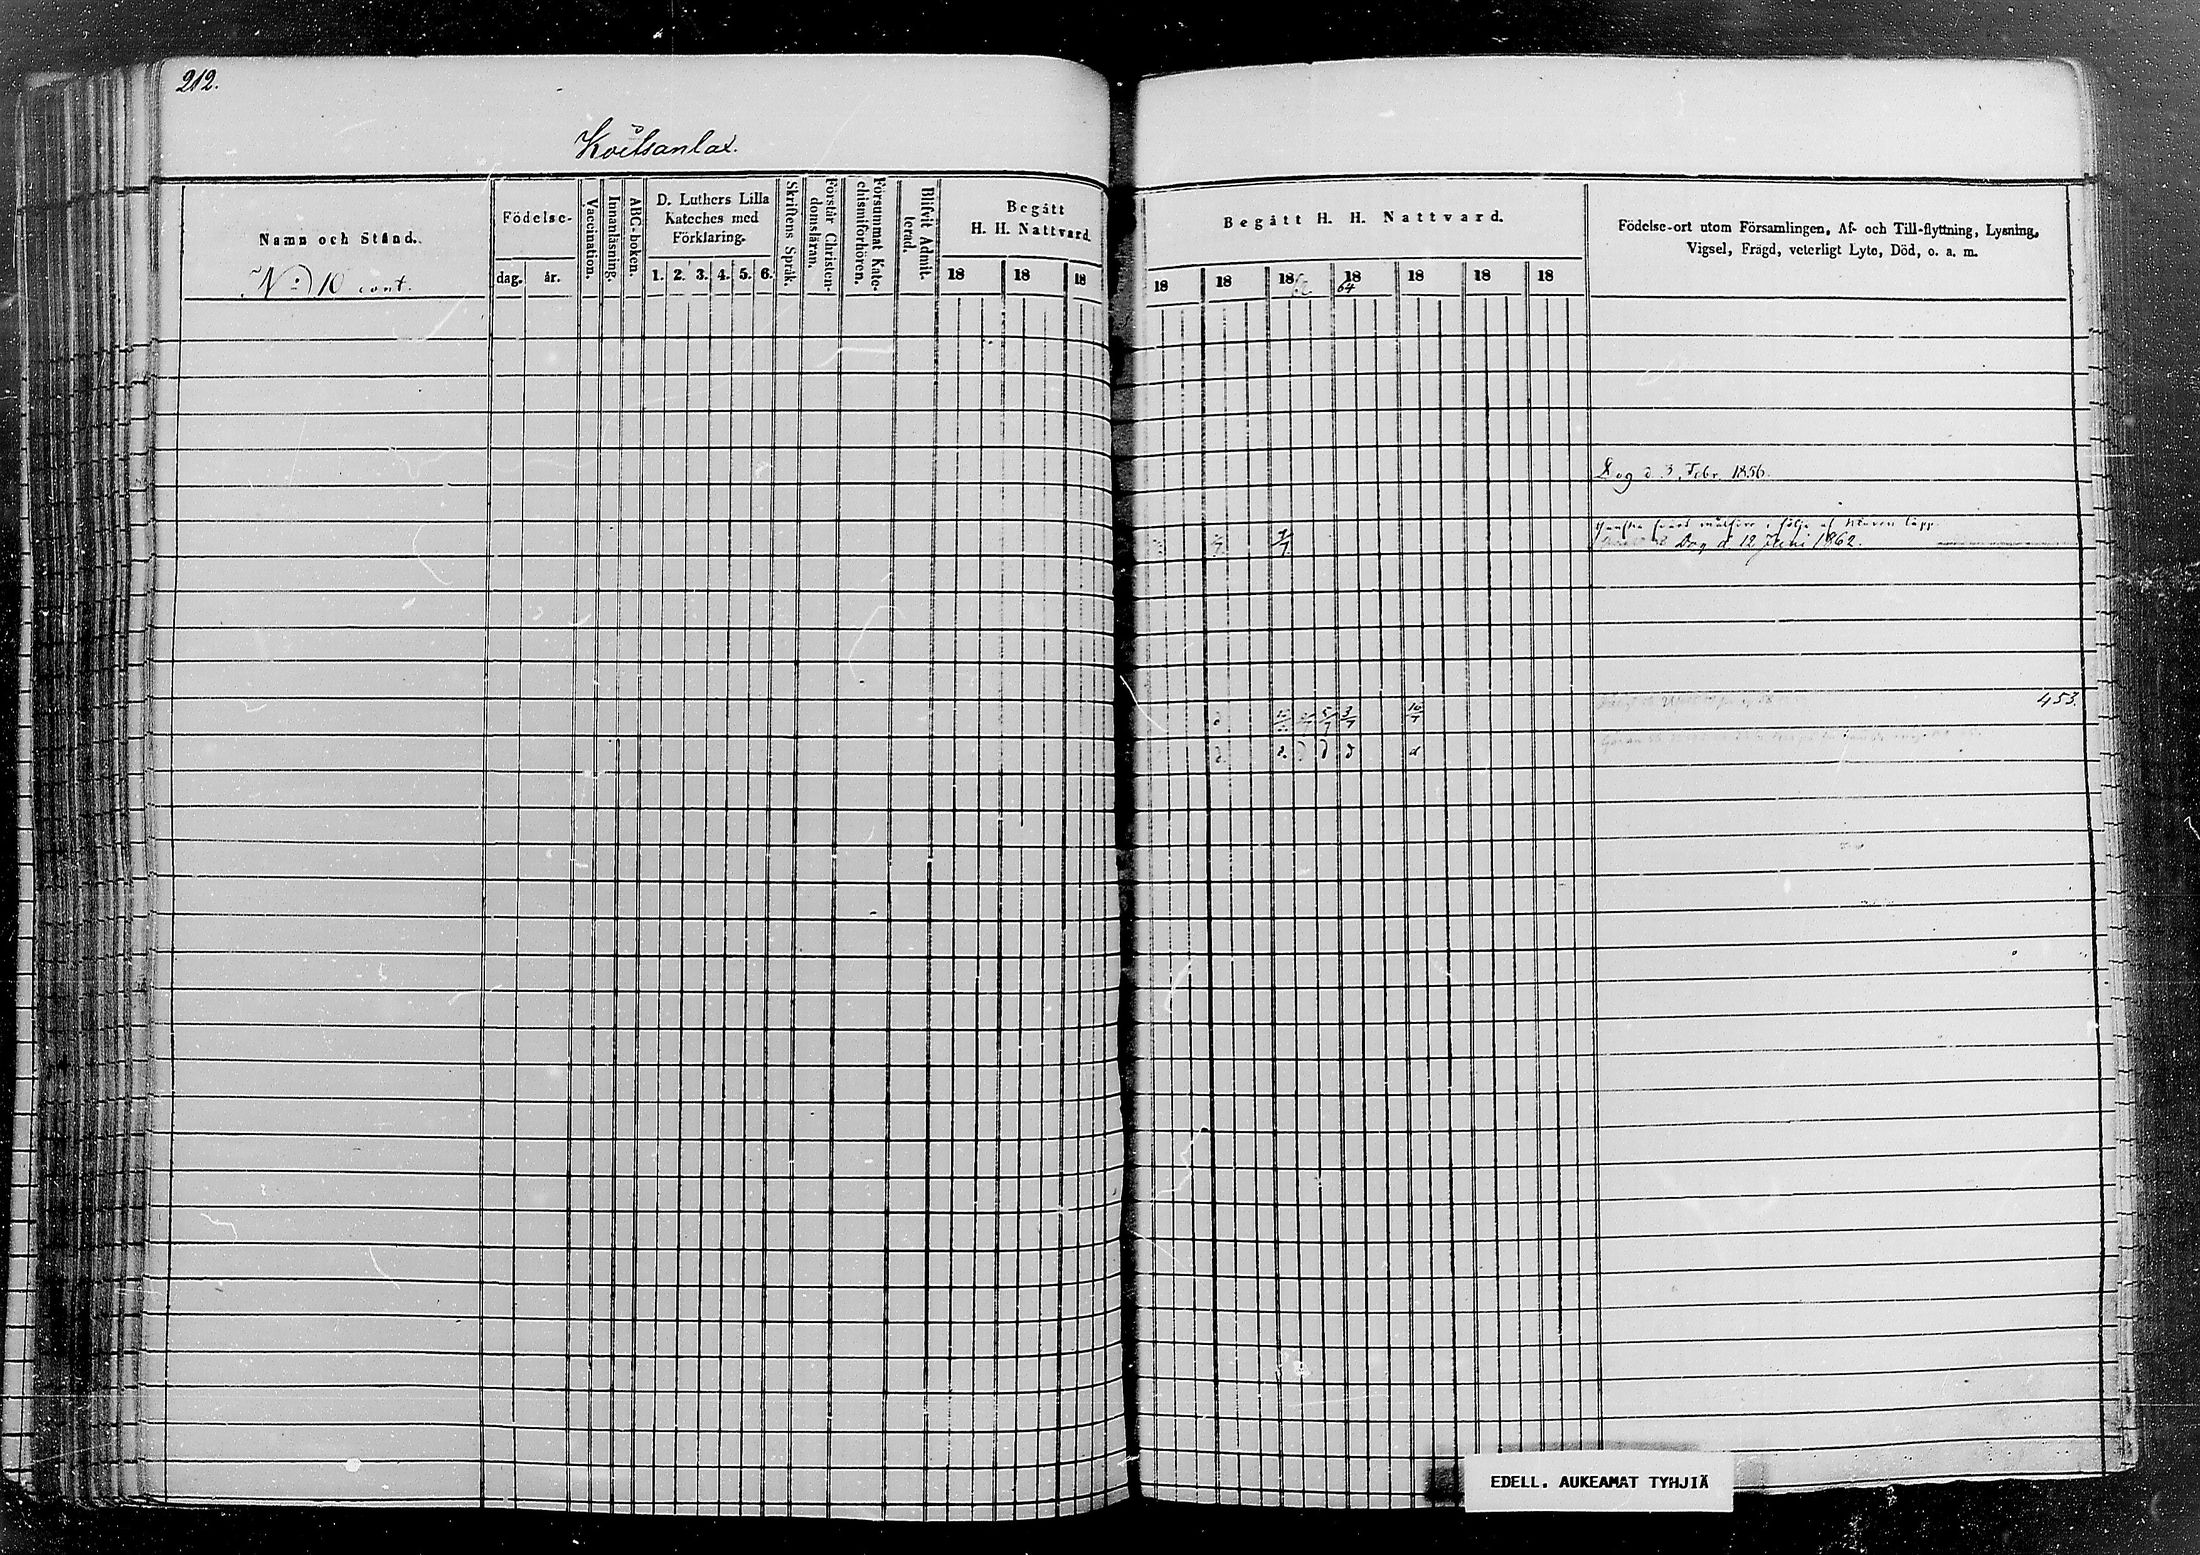 212.
Koitsanlax.
Namn och Stånd.
No 10 cont.
Födelse-
dag. år.
Vaccination.
Innanläsning.
ABC-boken.
D. Luthers Lilla
Kateches med
Förklaring.
1. 2. 3. 4. 5. 6.
Skriftens Språk.
Förstår Christen-
domsläran.
Försummat Kate-
chismiförhören.
Blifvit Admit-
terad.
Begått
H. H. Nattvard.
18 18 18
Begått H. H. Nattvard.
18 18 18 18 64 18 18 18
Födelse-ort utom Församlingen, Af- och Till-flyttning, Lysning,
Vigsel, Frägd, veterligt Lyte, Död, o. a. m.
Dog d. 3 Febr. 1856.
Dog d. 12 Juni 1862.
453.
EDELL. AUKEAMAT TYHJIÄ